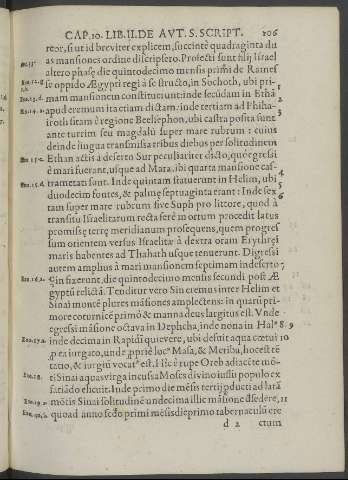 CAP. 10. LIB. II. DE AVT. S. SCRIPT. 106
reor, si ut id breviter explicem, succintè quadraginta du
as mansiones ordine discripsero. Profecti sunt filij Israel
altero phase die quintodecimo mensis primi de Ramef
se oppido Ægypti regi à se structo, in Sochoth, ubi pri-
mam mansionem constituerunt: inde secũdam in Ethã
apud eremum ita etiam dictam: inde tertiam ad Phiha-
iroth sitam è regione Beelsephon, ubi castra posita sunt
ante turrim seu magdalũ super mare rubrum: cuius
deinde lingua transmissa tribus diebus per solitudinem
Ethan actis à deserto Sur peculiariter dicto, què egressi
è mari fuerant, usque ad Mara, ibi quarta mansione cas-
trametati sunt. Inde quintam statuerunt in Helim, ubi
duodecim fontes, & palmę septuaginta erant: Inde sex
tam super mare rubrum sive Suph pro littore, quod à
transitu Israelitarum recta ferè in ortum procedit latus
promissę terrę meridianum prosequens, quem progres
sum orientem versus Israelitæ à dextra oram Erythrei
maris habentes ad Thahath usque tenuerunt. Digressi
autem amplius à mari mansionem septimam in deserto
Sin fixerunt, die quintodecimo mensis secundi post Æ
gyptũ relictã. Tenditur vero Sin eremus inter Helim et
Sinai montẽ plures mãsiones amplectens: in quarũ pri-
more coturnicẽ primò & manna deus largitus est. Vnde
egressi mãsione octava in Dephcha, inde nona in Halꝰ
inde decima in Rapidi quievere, ubi desuit aqua cœtui
ꝓ ea iurgato, unde ꝓpriè locꝰ Masa, & Meriba, hoc est tẽ
tatio, & iurgiũ vocatꝰ est. Hîc è rupe Oreb adiacẽte mõ-
ti Sinai aquas virga incussa Moses divino iussu populo ex
satiado elicuit. Inde primo die mẽsis tertij ducti ad larã
mõtis Sinai solitudinẽ undecima illic mãsione cõsedere,
quoad anno secũdo primi mẽsis die primo tabernaculũ ere
d 2 ctum
Exo. 14.
Exo. 15. c.
Exo. 15. d.
Exo. 16. a.
Exo. 17. a.
Exo. 18.
Exo. 19.
Exo. 40. b.
2
3
4
5
6
7
8. 9
10
11